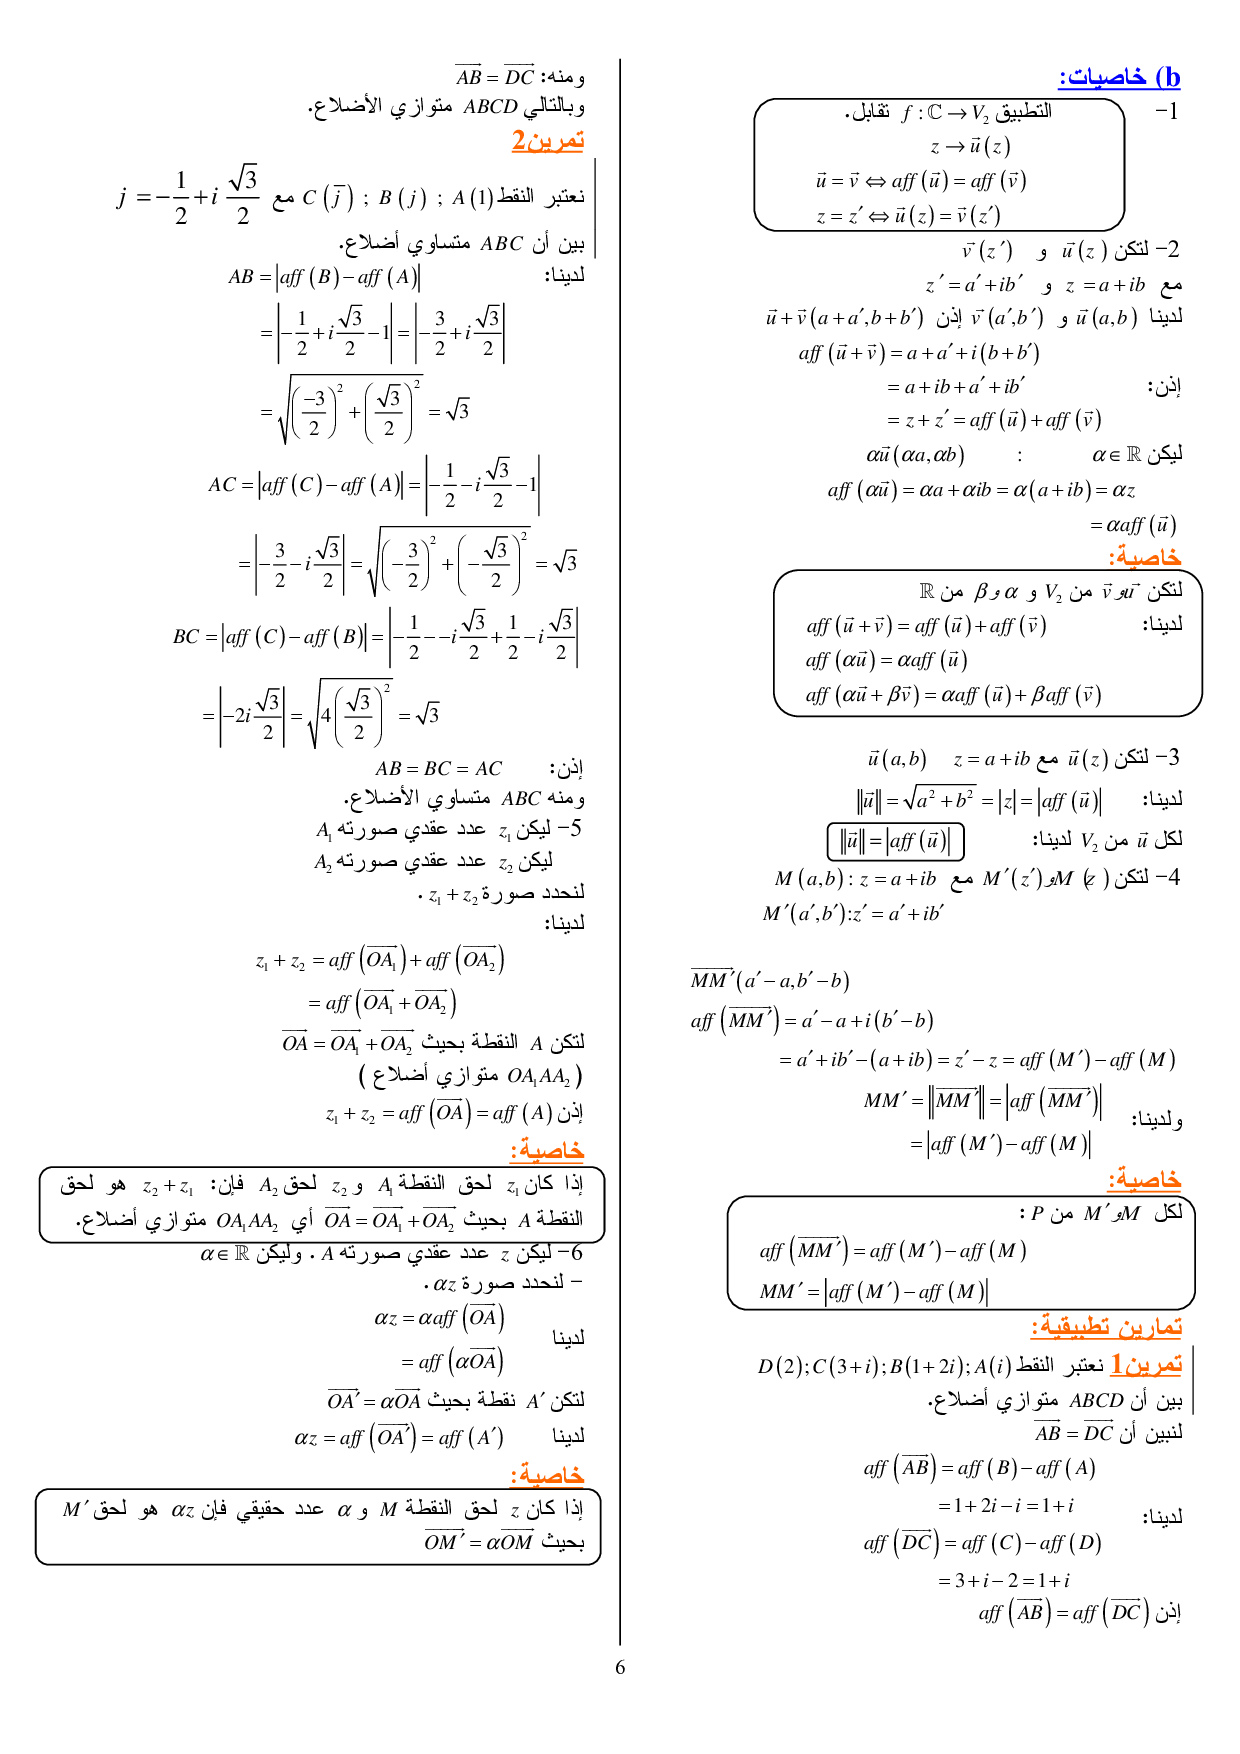 b) خاصيات:
1- التطبيق f : ℂ → V₂ تقابل.
z → u⃗(z)
u⃗ = v⃗ ⇔ aff(u⃗) = aff(v⃗)
z = z′ ⇔ u⃗(z) = v⃗(z′)
2- لتكن u⃗(z) و v⃗(z′)
مع z = a + ib و z′ = a′ + ib′
لدينا u⃗(a,b) و v⃗(a′,b′) إذن u⃗ + v⃗(a + a′, b + b′)
aff(u⃗ + v⃗) = a + a′ + i(b + b′)
إذن: = a + ib + a′ + ib′
= z + z′ = aff(u⃗) + aff(v⃗)
ليكن α ∈ ℝ : αu⃗(αa, αb)
aff(αu⃗) = αa + αib = α(a + ib) = αz
= αaff(u⃗)
خاصية:
لتكن u⃗ و v⃗ من V₂ و α و β من ℝ
لدينا: aff(u⃗ + v⃗) = aff(u⃗) + aff(v⃗)
aff(αu⃗) = αaff(u⃗)
aff(αu⃗ + βv⃗) = αaff(u⃗) + βaff(v⃗)
3- لتكن u⃗(z) مع z = a + ib u⃗(a,b)
لدينا: ‖u⃗‖ = √(a² + b²) = |z| = |aff(u⃗)|
لكل u⃗ من V₂ لدينا: ‖u⃗‖ = |aff(u⃗)|
4- لتكن M(z) و M′(z′) مع M(a,b) : z = a + ib
M′(a′,b′) : z′ = a′ + ib′
MM′⃗(a′ − a, b′ − b)
aff(MM′⃗) = a′ − a + i(b′ − b)
= a′ + ib′ − (a + ib) = z′ − z = aff(M′) − aff(M)
ولدينا: MM′ = ‖MM′⃗‖ = |aff(MM′⃗)|
= |aff(M′) − aff(M)|
خاصية:
لكل M و M′ من P :
aff(MM′⃗) = aff(M′) − aff(M)
MM′ = |aff(M′) − aff(M)|
تمارين تطبيقية:
تمرين1 نعتبر النقط D(2); C(3 + i); B(1 + 2i); A(i)
بين أن ABCD متوازي أضلاع.
لنبين أن AB⃗ = DC⃗
aff(AB⃗) = aff(B) − aff(A)
= 1 + 2i − i = 1 + i
لدينا:
aff(DC⃗) = aff(C) − aff(D)
= 3 + i − 2 = 1 + i
إذن aff(AB⃗) = aff(DC⃗)
ومنه: AB⃗ = DC⃗
وبالتالي ABCD متوازي الأضلاع.
تمرين2
نعتبر النقط A(1) ; B(j) ; C(j̄) مع j = −1/2 + i √3/2
بين أن ABC متساوي أضلاع.
لدينا: AB = |aff(B) − aff(A)|
= |−1/2 + i √3/2 − 1| = |−3/2 + i √3/2|
= √((−3/2)² + (√3/2)²) = √3
AC = |aff(C) − aff(A)| = |−1/2 − i √3/2 − 1|
= |−3/2 − i √3/2| = √((−3/2)² + (−√3/2)²) = √3
BC = |aff(C) − aff(B)| = |−1/2 − −i √3/2 + 1/2 − i √3/2|
= |−2i √3/2| = √(4(√3/2)²) = √3
إذن: AB = BC = AC
ومنه ABC متساوي الأضلاع.
5- ليكن z₁ عدد عقدي صورته A₁
ليكن z₂ عدد عقدي صورته A₂
لنحدد صورة z₁ + z₂ .
لدينا:
z₁ + z₂ = aff(OA₁⃗) + aff(OA₂⃗)
= aff(OA₁⃗ + OA₂⃗)
لتكن A النقطة بحيث OA⃗ = OA₁⃗ + OA₂⃗
( OA₁AA₂ متوازي أضلاع )
إذن z₁ + z₂ = aff(OA⃗) = aff(A)
خاصية:
إذا كان z₁ لحق النقطة A₁ و z₂ لحق A₂ فإن: z₂ + z₁ هو لحق
النقطة A بحيث OA⃗ = OA₁⃗ + OA₂⃗ أي OA₁AA₂ متوازي أضلاع.
6- ليكن z عدد عقدي صورته A . وليكن α ∈ ℝ
- لنحدد صورة αz .
αz = αaff(OA⃗)
لدينا
= aff(αOA⃗)
لتكن A′ نقطة بحيث OA′⃗ = αOA⃗
لدينا αz = aff(OA′⃗) = aff(A′)
خاصية:
إذا كان z لحق النقطة M و α عدد حقيقي فإن αz هو لحق M′
بحيث OM′⃗ = αOM⃗
6